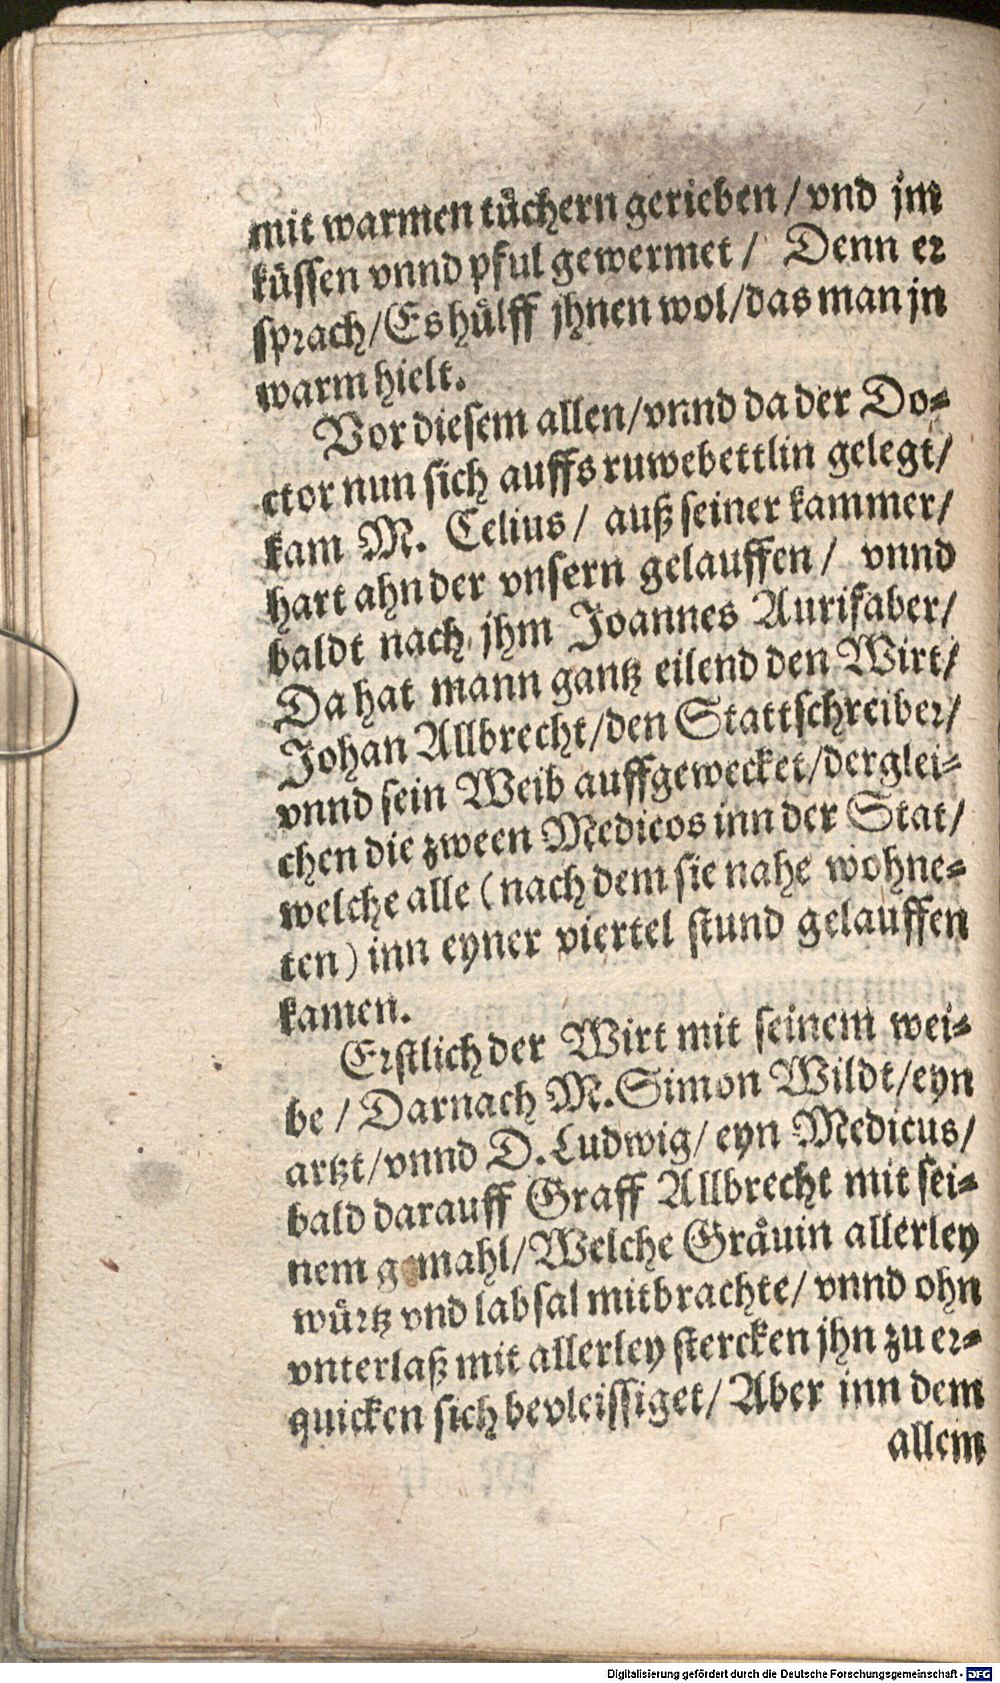 mit warmen tůchern gerieben / vnd jm
kůssen vnnd pful gewermet / Denn er
sprach / Es hůlff jhnen wol / das man jn
warm hielt.
Vor diesem allen / vnnd da der Do⸗
ctor nun sich auffs ruwebettlin gelegt /
kam M. Celius / auß seiner kammer /
hart ahn der vnsern gelauffen / vnnd
baldt nach jhm Joannes Aurifaber /
Da hat mann gantz eilend den Wirt /
Johan Allbrecht / den Stattschreiber /
vnnd sein Weib auffgewecket / derglei⸗
chen die zween Medicos inn der Stat /
welche alle (nach dem sie nahe wohne⸗
ten) inn eyner viertel stund gelauffen
kamen.
Erstlich der Wirt mit seinem wei⸗
be / Darnach M. Simon Wildt / eyn
artzt / vnnd D. Ludwig / eyn Medicus /
bald darauff Graff Allbrecht mit sei⸗
nem gemahl / Welche Gråuin allerley
wůrtz vnd labsal mitbrachte / vnnd ohn
vnterlaß mit allerley stercken jhn zu er⸗
quicken sich bevleissiget / Aber inn dem
allem
Digitalisierung gefördert durch die Deutsche Forschungsgemeinschaft - DFG